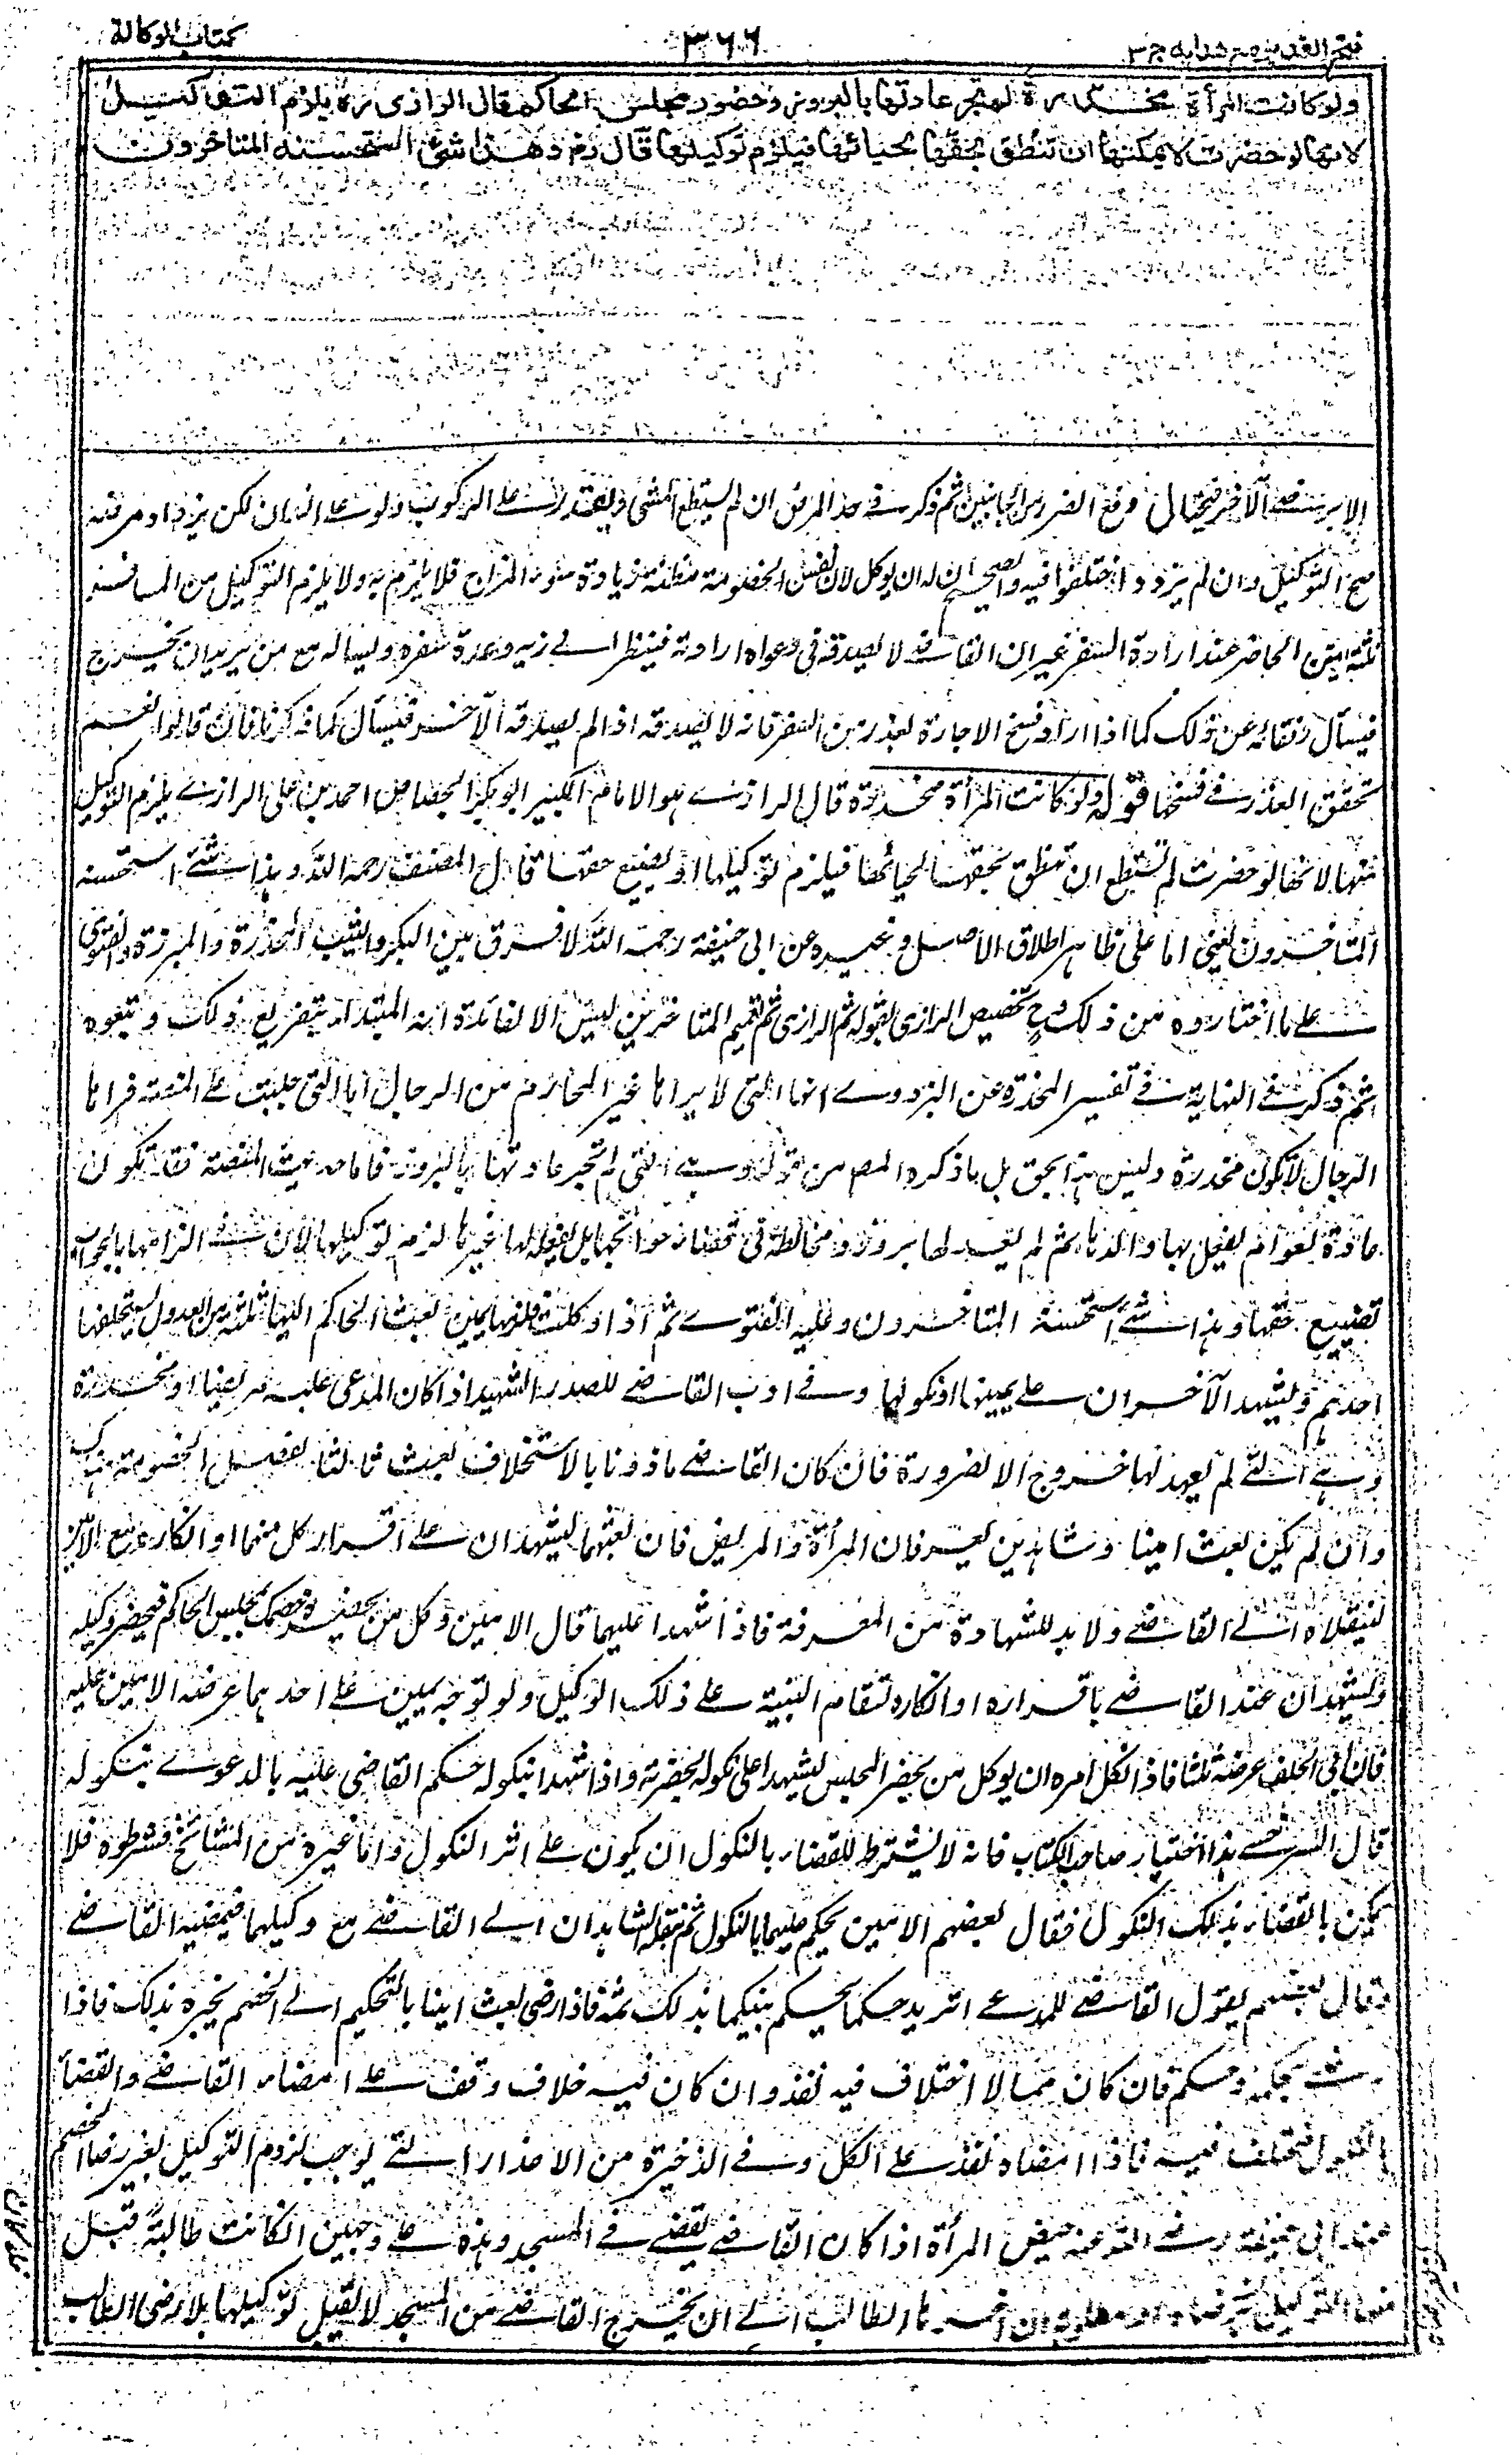 كتاب الوكالة
٣٦٦
فتح القدير مع هدايه ج ٣
ولو كانت المرأة مخدرة لم تجر عادتها بالبروز وحضور مجلس الحاكم قال الرازى ره يلزم التوكيل
لانها لو حضرت لا يمكنها ان تنطق بحقها لحيائها فيلزم توكيلها قال رض وهذا شئ استحسنه المتاخرون
وقع الضرر من الجانبين ثم ذكر فى حد المرض ان لم يستطع المشى ويقدر على الركوب ولو على انسان لكن يزداد مرضه
صح التوكيل وان لم يزدد اختلفوا فيه والصحيح ان له ان يوكل لان نفس الخصومة مظنة زيادة سوء المزاج فلا يلزم به ولا يلزم التوكيل من المسافر
من الحاضر عند ارادة السفر غير ان القاضى لا يصدقه فى دعواه ارادته فينظر الى زيه وعدة سفره ويساله مع من يريد ان يخرج
فيسأل رفقائه عن ذلك كما اذا اراد فسخ الاجارة لعذر من السفر فانه لا يصدقه اذا لم يصدقه الآخر فيسأل كما ذكرنا فان قالوا نعم
تحقق العذر فى فسخها قوله ولو كانت المرأة مخدرة قال الرازى هو الامام الكبير ابو بكر الجصاص احمد بن على الرازى يلزم التوكيل
منها لانها لو حضرت لم تستطع ان تنطق بحقها لحيائها فيلزم توكيلها او يضيع حقها قال المصنف رحمه الله وهذا شئ استحسنه
المتاخرون يعنى اما على ظاهر اطلاق الاصل وغيره عن ابى حنيفة رحمه الله لا فرق بين البكر والثيب المخدرة والمبرزة والفتوى
على ما اختاروه من ذلك وح تخصيص الرازى بقوله ثم الرازى ثم تعميم المتاخرين ليس الا لفائدة انه المبتدئ بتفريع ذلك وتبعوه
ثم ذكر فى النهاية فى تفسير المخدرة عن البزدوى انها التى لا يراها غير المحارم من الرجال اما التى جليت على المنصة فراها
الرجال لا تكون مخدرة وليس هذا بحق بل ما ذكره المص من قوله وهى التى لم تجر عادتها بالبروز فاما حديث المنصة فقد تكون
عادة لعوام يفعل بها والدها ثم لم يعهد لها بروز ومخالطة فى قضاء حوائجها بل يفعله لها غيرها لزم توكيلها لان فى الزامها بالجواب
تضييع حقها وهذا شئ استحسنه المتاخرون وعليه الفتوى ثم اذا وكلت فلزمها يمين بعث الحاكم اليها ثلثة من العدول يستحلفها
احدهم ويشهد الآخران على يمينها او نكولها وفى ادب القاضى للصدر الشهيد اذا كان المدعى عليه مريضا او مخدرة
وهى التى لم يعهد لها خروج الا لضرورة فان كان القاضى ماذونا بالاستخلاف بعث نائبا يفصل الخصومة هناك
وان لم يكن بعث امينا وشاهدين يعرفان المرأة والمريض فان بعثهما ليشهدان على اقرار كل منهما او انكاره مع الامين
لينقلاه الى القاضى ولا بد للشهادة من المعرفة فاذا شهدا عليهما قال الامين وكل من يحضر خصمك مجلس الحاكم فيحضر وكيله
ويشهدان عند القاضى باقراره او انكاره لتقام البينة على ذلك الوكيل ولو توجه يمين على احدهما عرضه الامين عليه
فان ابى الحلف عرضه ثلثا فاذا نكل امره ان يوكل من يحضر المجلس ليشهدا على نكوله بحضرته واذا شهدا بنكوله حكم القاضى عليه بالدعوى بنكوله
قال السرخسى هذا اختيار صاحب الكتاب فانه لا يشترط للقضاء بالنكول ان يكون على اثر النكول واما غيره من المشائخ فشرطوه فلا
يمكن بالقضاء بذلك النكول فقال بعضهم الامين يحكم عليهما بالنكول ثم ينقله الشاهدان الى القاضى مع وكيلهما فيمضيه القاضى
وقال بعضهم يقول القاضى للمدعى اتريد حكما يحكم بينكما بذلك ثمه فاذا رضى بعث امينا بالتحكيم الى الخصم يخبره بذلك فاذا
رضى بحكمه وحكم فان كان مما لا اختلاف فيه نفذ وان كان فيه خلاف وقف على امضاء القاضى والقضاء
بالنكول مختلف فيه فاذا امضاه نفذ على الكل وفى الذخيرة من الاعذار التى يوجب لزوم التوكيل بغير رضا الخصم
عند ابى حنيفة رضى الله عنه حيض المرأة اذا كان القاضى يقضى فى المسجد وهذه على وجهين ان كانت طالبة قبل
منها التوكيل بغير رضاه او مطلوبة ان اخرها الطالب الى ان يخرج القاضى من المسجد لا يقبل توكيلها بلا رضى الطالب